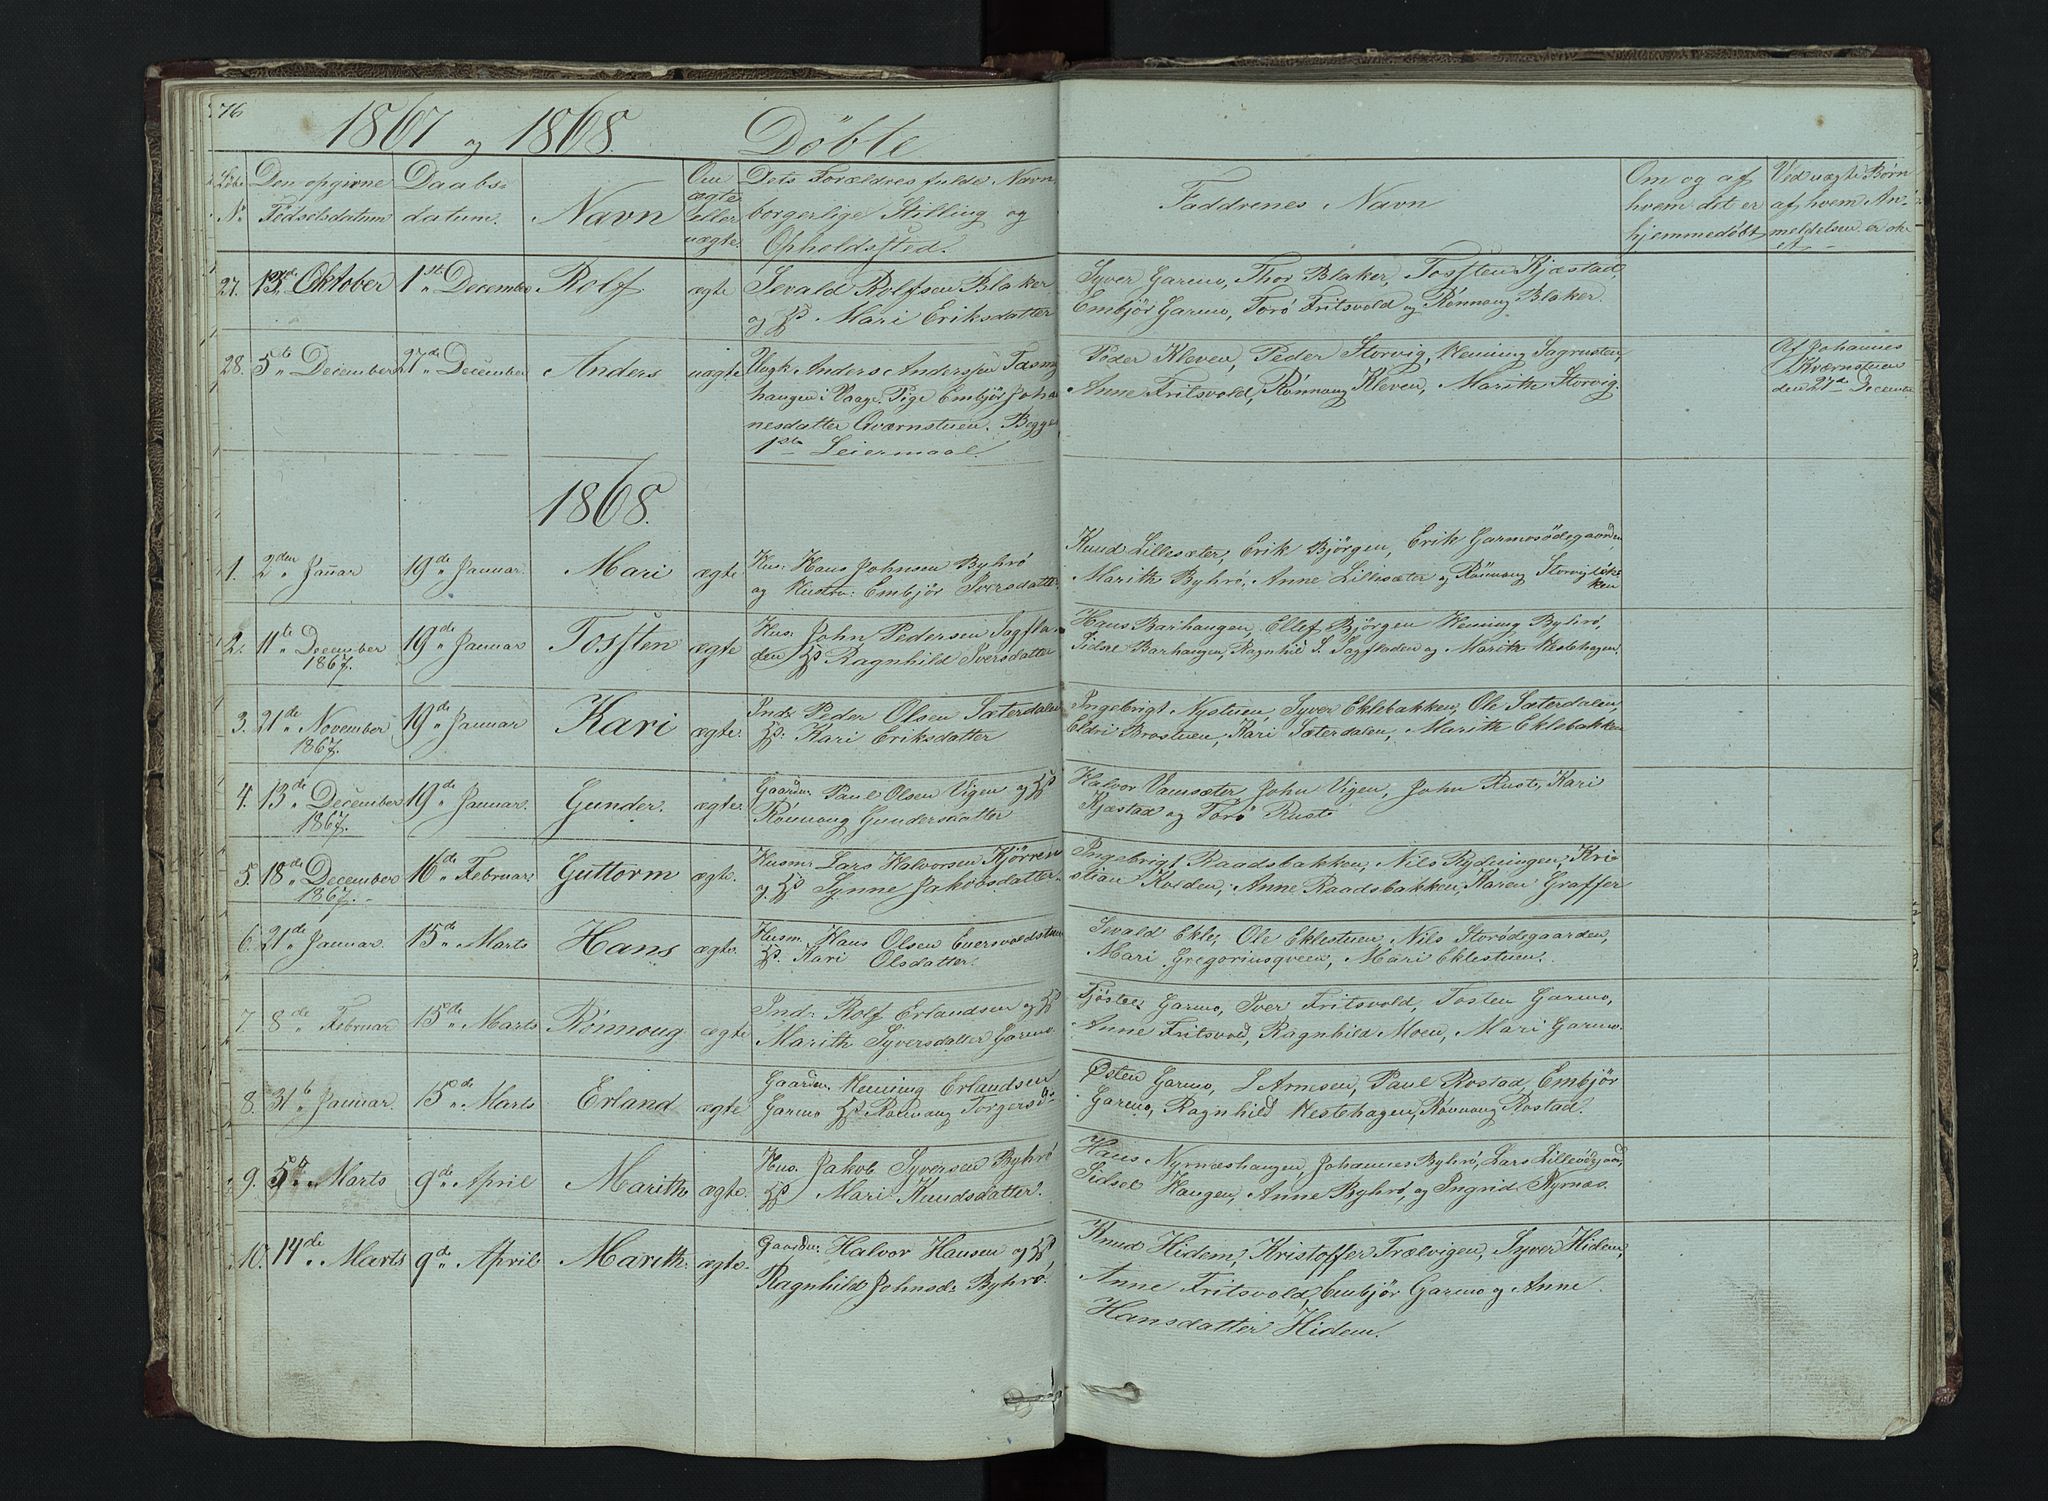 76
1867 og 1868. Döbte
Löbe No
Den opgivne Födselsdatum
Daabs-datum.
Navn
Om ægte eller uægte.
Dets Forældres fulde Navn, borgerlige Stilling og Opholdssted.
Faddrenes Navn
Om og af hvem det er hjemmedöbt
Ved uægte Börn af hvem Anmeldelsen er
27. 13de Oktober 1ste December Rolf ægte
Sevald Rolfsen Blaker
og Mari Eriksdatter
Syver Garmo, Thor Blaker, Tosten Kjæstad,
Embjör Garmo, Torö Fritsvold og Rönnoug Blaker.
28. 5te December 27de December Anders uægte
Ungk. Anders Anderssen
haugen i Vaage. Pige Embjör Joha
nesdatter Qværnstuen. Begges
1ste Leiermaal.
Peder Kleven, Peder Storvig, Henning Sagrusten,
Anne Fritsvold, Rönnoug Kleven, Marith Storvig.
Af Johannes
Kværnstuen
den 27de December
1868.
1. 2den Januar 19de Januar. Mari ægte
Hus: Hans Johnsen Byhrö
og Hustru: Embjör Iversdatter.
Knud Lillesæter, Erik Björgen, Erik Garmosödegaarden,
Marith Byhrö, Anne Lillesæter og Rönnoug Storvigbakken
2. 11te December 1867. 19de Januar Tossten ægte
Hus: John Pedersen Sagfla-
den Ragnhild Iversdatter
Hans Barhaugen, Ellef Björgen Henning Byhrö,
Sidsel Barhaugen, Ragnhild I. Sagfladen og Marith Hestehagen.
3. 21de November 1867. 19de Januar Kari ægte.
Ind: Peder Olsen Sæterdalen
Kari Eriksdatter
Ingebrigt Nystuen, Syver Eklebakken, Ole Sæterdalen,
Eldri Brostuen, Kari Sæterdalen, Marith Eklebakken
4. 13de December 1867. 19de Januar. Gunder. ægte
Gaardm: Paul Olsen Vigen og
Rönnoug Gundersdatter
Halvor Vamsæter John Vigen, John Ruste, Kari
Kjæstad og Torö Ruste
5. 18de December 1867. 16de Februar Guttorm ægte.
Husm: Lars Halvorsen Kjörren
og Synne Jakobsdatter.
Ingebrigt Raadsbakken, Nils Rydningen, Kri-
stian Kolden, Anne Raadsbakken, Karen Graffer
6. 21de Januar. 15de Marts Hans ægte.
Husm. Hans Olsen
Kari Olsdatter.
Sevald Ekle, Ole Eklestuen, Nils Storödegaarden,
Mari Mari Eklestuen.
7. 8de Februar 15de Marts Rönnoug ægte
Ind: Rolf Erlandsen og
Marith Syversdatter Garmo.
Garmo, Iver Fritsvold, Tosten Garmo,
Anne Fritsvold, Ragnhild Moen, Mari Garmo.
8. 31te Januar. 15de Marts Erland ægte
Gaardm: Henning Erlandsen
Garmo Rönnoug Torgersd:
Østen Garmo, I Arnesen, Paul Rostad, Embjör
Garmo, Ragnhild Hestehagen, Rönnoug Rostad.
9. 5te Marts 9de April Marith ægte.
Hus. Jakob Syversen Byhrö
Mari Knudsdatter.
Hans Nyrnæshaugen, Johannes Byhrö, Lars Lilleödegaard,
Sidsel Haugen, Anne Byhrö, og Ingrid Nyrnæs.
10. 14de Marts 9de April Marith. ægte.
Gaardm: Halvor Hansen og
Ragnhild Johnsd: Byhrö.
Knud Hidem, Kristoffer Trælvigen, Syver Hidem,
Anne Fritsvold, Embjör Garmo og Anne
Hansdatter Hidem.